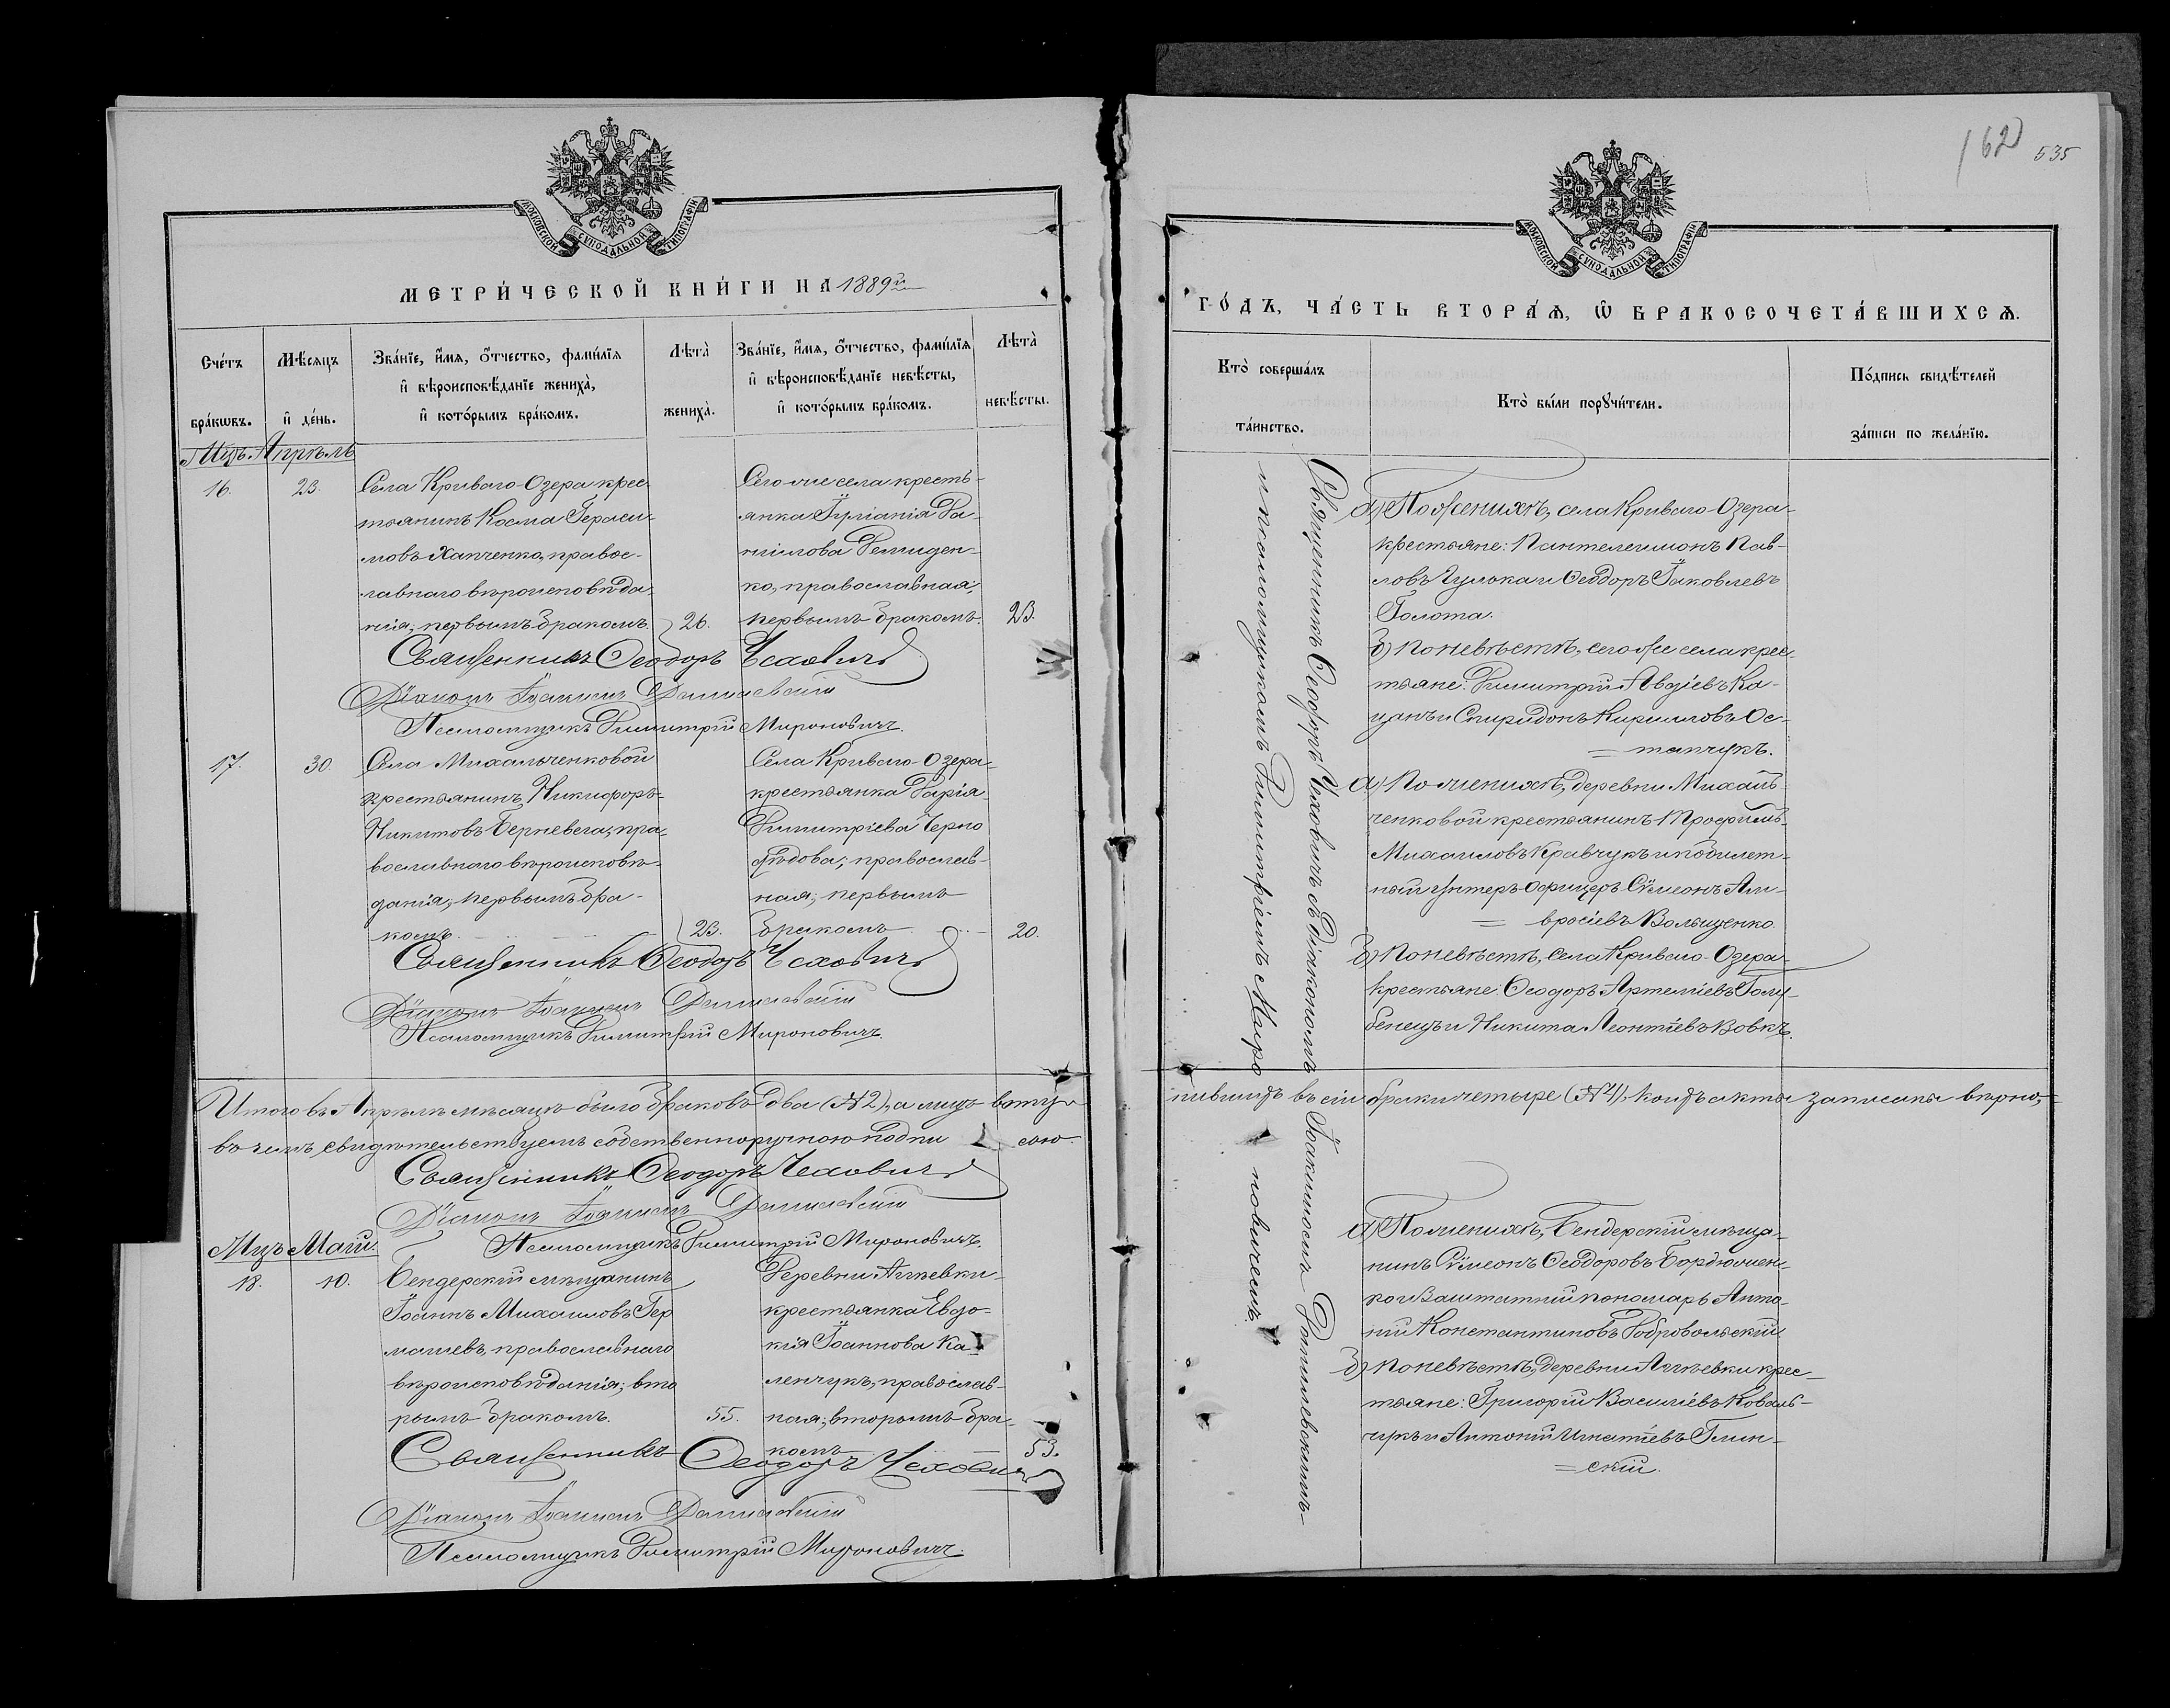 МОСКОВСКОЙ СѴНОДАЛЬНОЙ ТИПОГРАФІИ
МЕТРИ́ЧЕСКОЙ КНИ́ГИ НА 1889й
Сче́тъ бра́кѡвъ.
Мѣ́сяцъ и҆ де́нь.
Зва́нїе, и҆́мя, ѻ҆́тчество, фами́лїя
и҆ вѣроисповѣ́данїе жениха̀,
и҆ кото́рымъ бра́комъ.
Лѣта̀ жениха̀.
Зва́нїе, и҆́мя, ѻ҆́тчество, фами́лїя
и҆ вѣроисповѣ́данїе невѣ́сты,
и҆ кото́рымъ бра́комъ.
Лѣта̀ невѣ́сты.
Мцъ Апрѣль
16.
23.
Села Криваго-Озера крес-
тьянинъ Косма Гераси-
мовъ Хапченко, правос-
лавнаго вѣроисповѣда-
нія; первымъ бракомъ.
26.
Сего-же села кресть-
янка Іуліанія Да-
ніилова Демиден-
ко, православная;
первымъ бракомъ.
23.
Священникъ Ѳеодоръ Чехович
Діаконъ Іоакимъ Данилевскій
Псаломщикъ Димитрій Мироновичъ.
17.
30.
Села Михальченковой
крестьянинъ Никифоръ
Никитовъ Берневега, пра-
вославнаго вѣроисповѣ-
данія, первымъ бра-
комъ.
23.
Села Криваго-Озера
крестьянка Дарія
Димитріева Черно
дѣдова; православ-
ная; первымъ
бракомъ
20.
Священникъ Ѳеодоръ Чехович
Діаконъ Іоакимъ Данилевскій
Псаломщикъ Димитрій Мироновичъ.
Итого въ Апрѣлѣ мѣсяцѣ было браковъ два (№2), а лицъ всту-
въ чемъ свидѣтельствуемъ собственноручною подпи сью
Священникъ Ѳеодоръ Чехович
Діаконъ Іоакимъ Данилевскій
Псаломщикъ Димитрій Мироновичъ.
Мцъ Маій.
18.
10.
Бендерскій мѣщанинъ
Іоаннъ Михаиловъ Гер
манъ, православнаго
вѣроисповѣданія; вто
рымъ бракомъ.
55.
Деревни Ажеевки
крестьянка Евдо-
кія Іоаннова Ка
ленчукъ, православ-
ная; вторымъ бра-
комъ
53.
Священникъ Ѳеодоръ Чехович
Діаконъ Іоакимъ Данилевскій
Псаломщикъ Димитрій Мироновичъ.
162 535
МОСКОВСКОЙ СѴНОДАЛЬНОЙ ТИПОГРАФІИ
ГО́ДЪ, ЧА́СТЬ ВТОРА́Ѧ, Ѡ҆ БРАКОСОЧЕТА́ВШИХСѦ.
Кто̀ соверша́лъ та́инство.
Кто̀ бы́ли порꙋчи́тели.
По́дпись свидѣ́телей
за́писи по жела́нїю.
Священникъ Ѳеодоръ Чеховичъ съ Діакономъ Іоакимомъ Данилевскимъ
и псаломщикомъ Димитріемъ Миро новичемъ.
а) По женихѣ, села Криваго-Озера
крестьяне: Пантелеимонъ Пав-
ловъ Гулька и Ѳеодоръ Іаковлевъ
Голота.
б) По невѣстѣ, сего же села крес-
тьяне: Димитрій Авдіевъ Ка-
цанъ и Спиридонъ Кирилловъ Ос-
тапчукъ.
а) По женихѣ, деревни Михаль-
ченковой крестьянинъ Трофимъ
Михаиловъ Кравчукъ и побилет-
ный унтеръ-офицеръ Сѵмеонъ Ам-
вросіевъ Волощенко.
б) По невѣстѣ, села Криваго-Озера
крестьяне: Ѳеодоръ Артеміевъ Голу-
бенецъ и Никита Леонтіевъ Вовкъ.
пившихъ въ сіи браки четыре (№4), коихъ акты записаны вѣрно,
а) По женихѣ, Бендерскій мѣща-
нинъ Сѵмеонъ Ѳеодоровъ Бордюжен-
ко и Заштатный пономарь Анто-
ній Константиновъ Добровольскій
б) По невѣстѣ, деревни Ажеевки крес-
тьяне: Григорій Василіевъ Коваль-
чукъ и Антоній Игнатіевъ Глин-
скій.